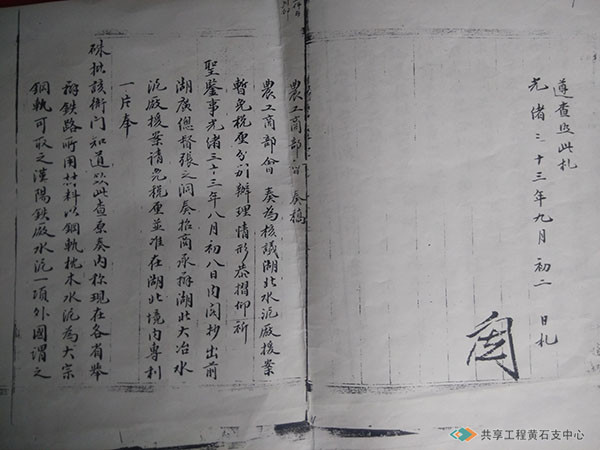 遵查照此札
光緒三十三年九月初二日札
農工商部會奏稿
農工商部會奏為核議湖北水泥廠援案
暫免稅厘分別辦理情形恭摺仰祈
聖鑒事光緒三十三年八月初八日內閣抄出前
湖廣總督張之洞奏招商承辦湖北大冶水
泥廠援案請免稅厘並准在湖北境內專利
一片奉
硃批該衙門知道欽此查原奏內稱現在各省舉
辦鐵路所用其料以鋼軌枕木水泥為大宗
鋼軌可取之漢陽鐵廠水泥一項外國謂之
共享工程黄石支中心